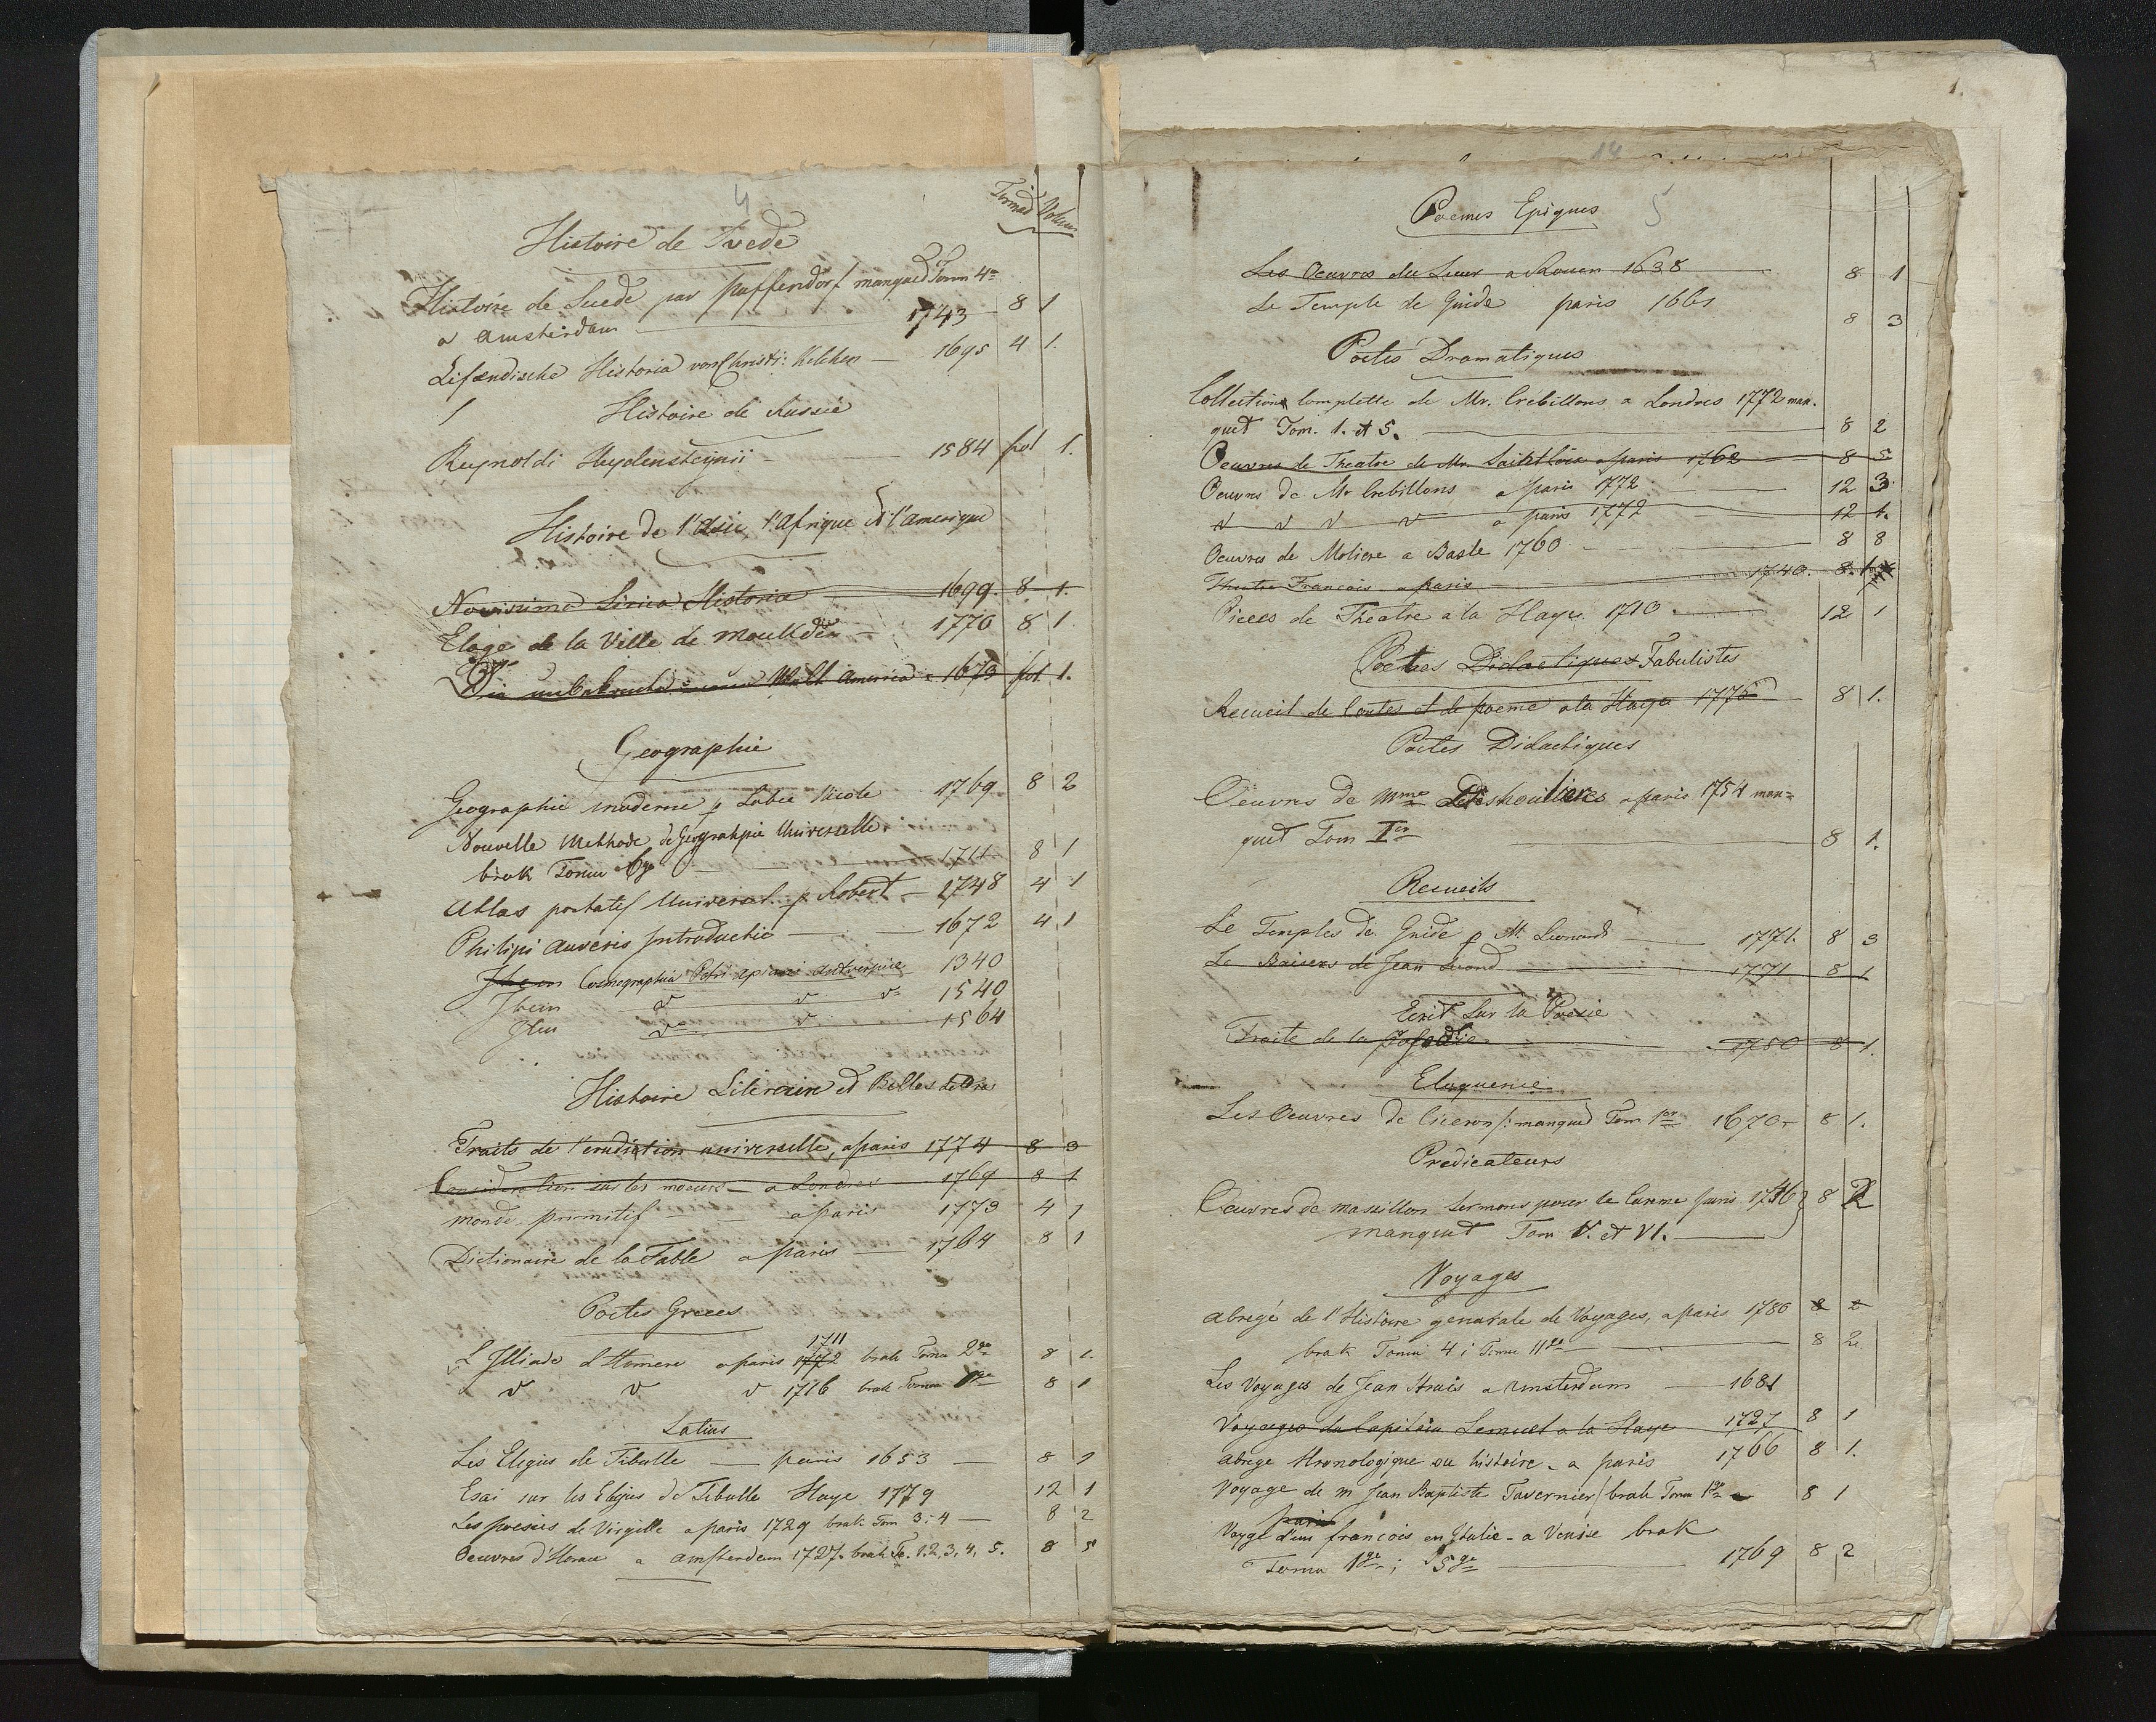 4
Format Volum
Histoire de Svede
Histoire de Suede par Puffendorf manqued Tomm 4o
a Amsterdam 1743 8 1
Lifendische Historia von Christi: Kelchen 1695 4 1.
Histoire de Russie
Reynoldi Heydensteynii 1584 fol 1.
Histoire de l'Asie, l'Afrique et l'amerique
Novissima Sinica Historia 1699. 8 1.
Eloge de la Ville de Moukden 1770 8 1
Die unbekante neue Welt America 1673 fol 1.
Geographie
Geographie moderne p Labee Nicole 1769 8 2
Nouvelle Methode de Geographie Universelle
brak Tomu 6go 1711 8 1
Atlas portatif Universel. p Robert 1748 4 1
Philipi Auveris Introductio 1672 4 1
Idem Cosmographia Petri apiani antverpiae 1340
Ibem v v v 1540
Item v v 1564
Histoire Literaire et Belles Lettres
Traite de l'erudiction universelle, a paris 1774 8 3
Consideration sur les moeurs a Londres 1769 8 1
monde primitif a paris 1773 4 1
Dictionaire de la Fable a paris 1764 8 1
Poetes Grecs
1711
L'Illiade d'Homere a paris 1712 brak Tomu 2go 8 1.
v v v 1716 brak Tomu 1go 8 1
Latins
Les Elegies de Tibulle paris 1653 8 1
Esai sur les Elejies de Tibulle Haye 1779 12 1
Les poesies de Virgille a paris 1729 brak Tom 3 i 4 8 2
Oeuvres d'Horace a amsterdam 1727. brak To. 1. 2, 3, 4, 5. 8 5
1.
14
Poemes Epiques 5
Les Oeuvres du Sieur a Rouen 1638 8 1
Le Temple de Gnide paris 1661 8 3
Poetes Dramatiques
Collection complette de Mr. Crebillons a Londres 1772 man-
quet Tom. 1. et 5. 8 2
Oeuvres de Theatre de Mr. Saintfoix a paris 1762 8 5
Oeuvres de Mr Crebillons a paris 1772 12 3.
v v v v a paris 1772 12 1.
Oeuvres de Moliere a Basle 1760 8 8
Theatre Francois a paris 1740. 8. 1
Pieces de Theatre a la Haye. 1710 12 1
Poetes Didactiques Fabulistes
Recueil de Contes et de poeme a la Haye 1770 8 1.
Poetes Didactiques
Oeuvres de Mme Deshoulieres a paris 1754 man=
quet Tom Ier 8 1.
Recueils
Le Temples de Gnide p M. Leonard 1771. 8 3
Le Baisers de Jean Second 1771 8 1
Ecrit sur la Poesie
Traite de la Prosodie 1750 8 1.
Eloquence
Les Oeuvres de Ciceron /: manqued Tom 1er 1670 8 1.
Predicateurs
Oeuvres de Massillon Sermons pour le Careme paris 1746 8 2
manquet Tom V. et VI.
Voyages
abregé de l'Histoire generale de Voyages, a paris 1780 8 2
brak Tomu 4 i Tomu 11go 8 2
Les Voyages de Jean Struis a Amsterdam 1681
Voyages du Capitain Lemuel a la Haye 1727 8 1
abrege Kronologique ou histoire a paris 1766 8 1.
Voyage de m Jean Baptiste Tavernier / brak Tomu 1go 8 1
paris
Voyge d'un francois en Italie - a Venise brak
Tomu 1go i 5go 1769 8 2